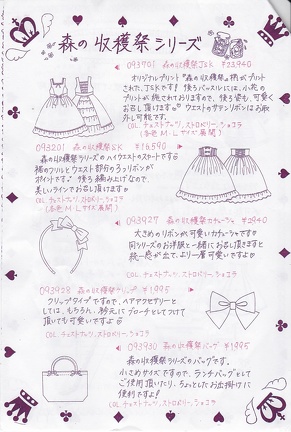 森の収穫祭シリーズ
093701 森の収穫祭JSK ¥23,940
オリジナルプリント『森の収穫祭』柄がプリント
された、JSKです！ 後ろバッスルには、小花の
プリントが施されておりますので、後ろ姿も、可愛く
お召し頂けます♡ ウエストのサテンリボンはお取り
外し可能です。
COL チェストナッツ、ストロベリー、ショコラ
(各色 M・Lサイズ展開)
093201 森の収穫祭SK ¥16,590
森の収穫祭シリーズのハイウエストのスカートです
裾のフリルとウエスト部分の3つリボンが
ポイントです。後ろ編み上げなので、
美しいラインでお召し頂けます
COL チェストナッツ、ストロベリー、ショコラ
(各色 M・Lサイズ展開)
093927 森の収穫祭カチューシャ ¥2940
大きめのリボンが可愛いカチューシャです
同シリーズのお洋服と一緒にお召し頂きますと
統一感が出て、より一層可愛いですよ
COL チェストナッツ、ストロベリー、ショコラ
093928 森の収穫祭クリップ ¥1,995
クリップタイプですので、ヘアアクセサリーと
しては、もちろん、衿元に ブローチとしてつけて
頂いても可愛いですよ
COL チェストナッツ、ストロベリー、ショコラ
093930 森の収穫祭バッグ ¥1,995
森の収穫祭シリーズのバッグです。
小さめサイズですので、ランチバッグとして
ご使用頂いたり、ちょっとしたお出掛けに
便利ですよ！
COL チェストナッツ、ストロベリー、ショコラ